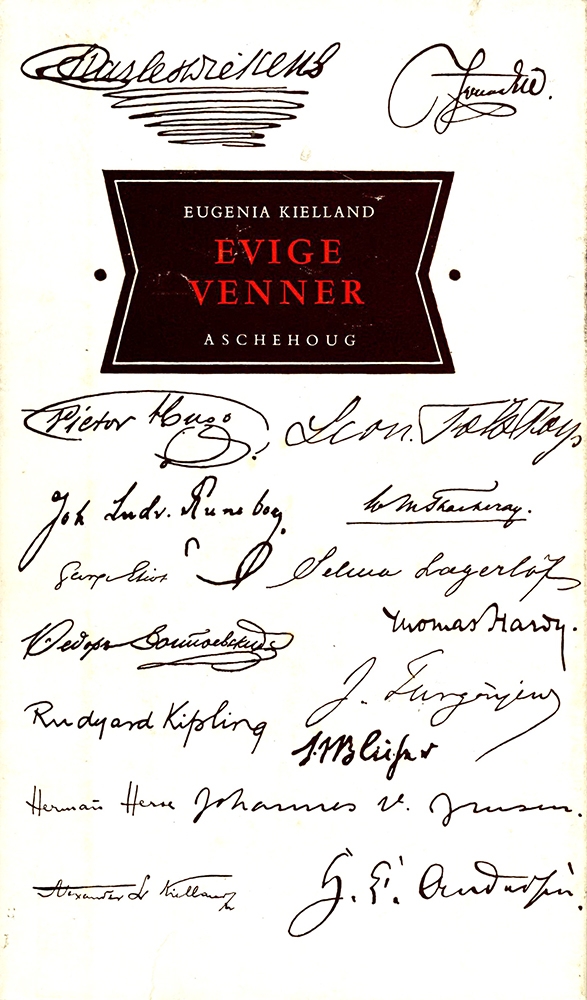 Charles Dickens
EUGENIA KIELLAND
EVIGE
VENNER
ASCHEHOUG
Victor Hugo
Leon. Tolstoy
Joh Ludv. Runeberg
W M Thackeray.
George Eliot
Selma Lagerlöf
Ѳедоръ Достоевскій
Thomas Hardy.
J. Turgénjew
Rudyard Kipling
Hermann Hesse
Johannes V. Jensen.
Alexander L. Kielland
H. C. Andersen.